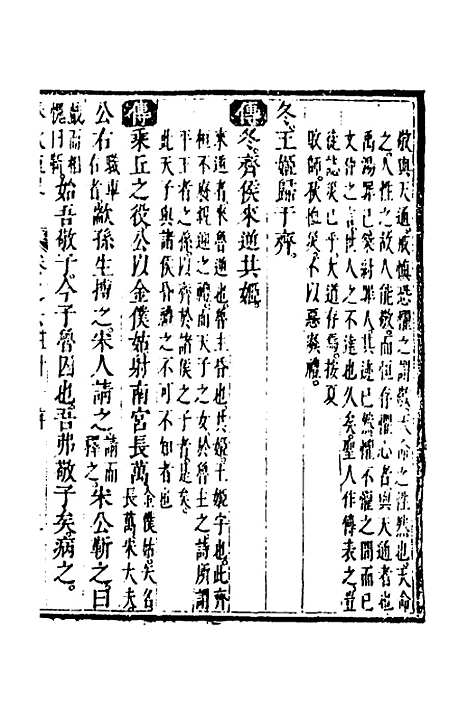 敬與天通戒慎恐懼之謂敬天命之性然也天命
之人性之故人能敬而恒存懼心者與天通者也
禹湯罪已桀紂罪人其迹已然懼不懼之間而已
文仲之言世人之不達也久矣聖人作傳表之豈
徒然哉大道存焉按夏
敬師
冬王姬歸于齊
傳冬齊侯來逆共姬
來逆者來魯逆也魯主昏也共姬王姬字也此齊
桓不廢親迎之禮而天子之女於魯主之詩所謂
平王者之孫以齊於諸侯之子者是矣
此天子與諸侯昏禮之不可不知者也
傳乘丘之役公以金僕姑射南宮長萬金僕姑矢名
長萬宋大夫
公右職車右者歂孫生搏之宋人請之請而釋之宋公靳之曰
戲而相愧曰靳始吾敬子今子魯囚也吾弗敬子矣病之